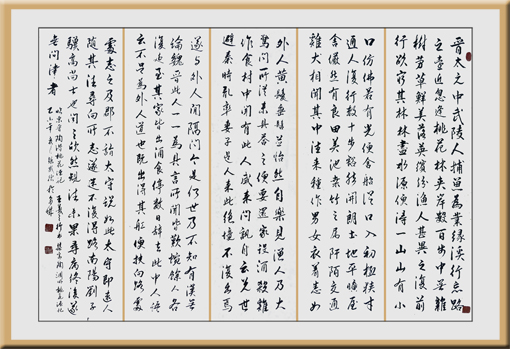 晉太元中武陵人捕魚為業緣溪行忘路
之遠近忽逢桃花林夾岸數百步中無雜
樹芳草鮮美落英繽紛漁人甚異之復前
行欲窮其林林盡水源便得一山山有小
口仿佛若有光便舍船從口入初極狹才
通人復行數十步豁然開朗土地平曠屋
舍儼然有良田美池桑竹之屬阡陌交通
雞犬相聞其中往來種作男女衣著悉如
外人黃髮垂髫並怡然自樂見漁人乃大
驚問所從來具答之便要還家設酒殺雞
作食村中聞有此人咸來問訊自云先世
避秦時亂率妻子邑人來此絕境不復出焉
遂與外人間隔問今是何世乃不知有漢無
論魏晉此人一一為具言所聞皆歎惋餘人各
復延至其家皆出酒食停數日辭去此中人語
云不足為外人道也既出得其船便扶向路處
處志之及郡下詣太守說如此太守即遣人
隨其往尋向所志遂迷不復得路南陽劉子
驥高尚士也聞之欣然規往未果尋病終後遂
無問津者